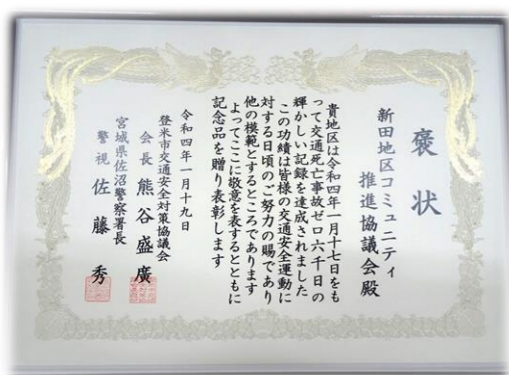 褒状
新田地区コミュニティ
推進協議会殿
貴地区は令和四年一月十七日をも
って交通死亡事故ゼロ六千日の
輝かしい記録を達成されました
この功績は皆様の交通安全運動に
対する日頃のご努力の賜であり
他の模範とするところであります
よってここに敬意を表するとともに
記念品を贈り表彰します
令和四年一月十九日
登米市交通安全対策協議会
会長 熊谷盛廣
宮城県佐沼警察署長
警視 佐藤 秀